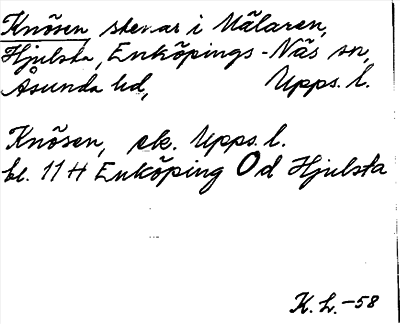 Knösen stenar i Mälaren,
Hjulsta, Enköpings-Näs sn,
Åsunda hd, Upps. l.
Knösen, ek. Upps. l.
bl. 11 H Enköping Od Hjulsta
K. L. -58